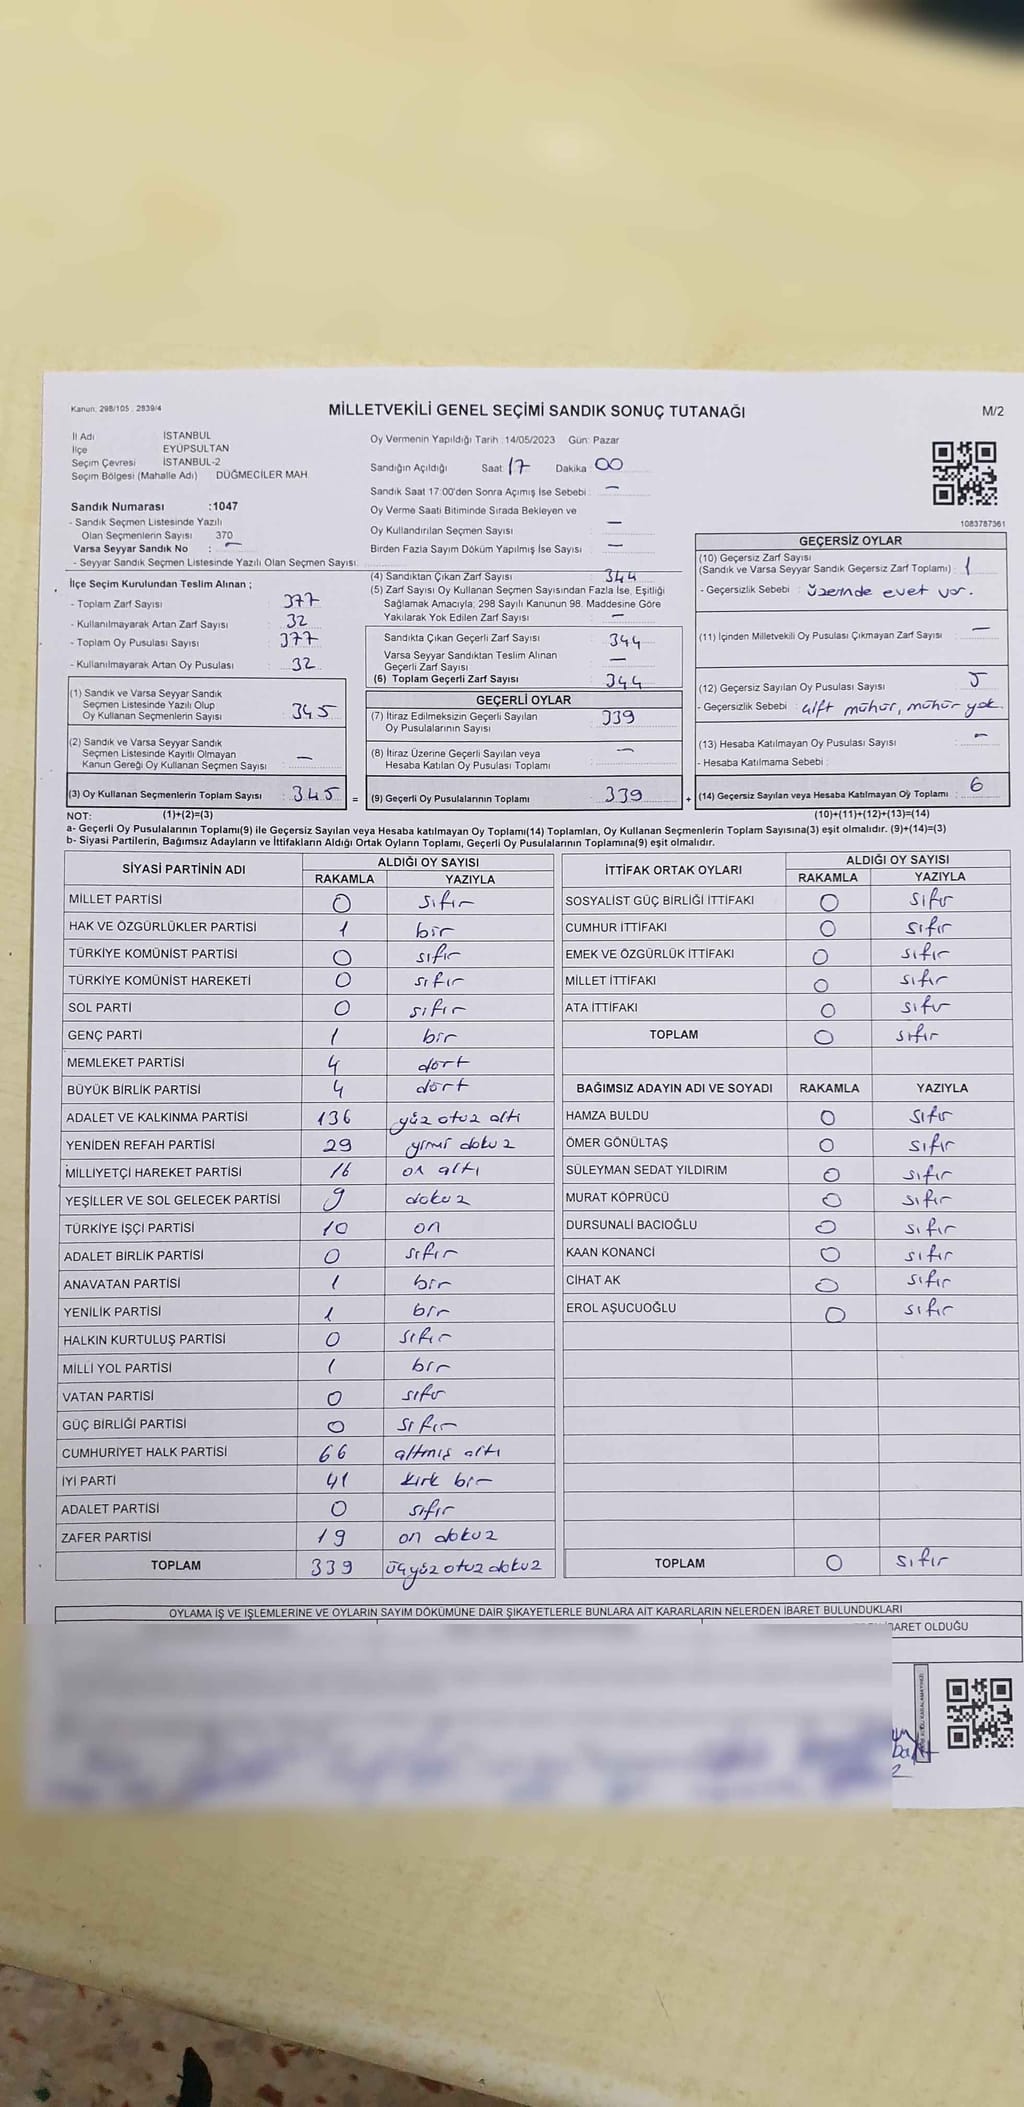 Kanun: 298/105 , 2839/4
MİLLETVEKİLİ GENEL SEÇİMİ SANDIK SONUÇ TUTANAĞI
M/2
İl Adı İSTANBUL
İlçe EYÜPSULTAN
Seçim Çevresi İSTANBUL-2
Seçim Bölgesi (Mahalle Adı) DÜĞMECİLER MAH
Sandık Numarası :1047
- Sandık Seçmen Listesinde Yazılı
Olan Seçmenlerin Sayısı 370
Varsa Seyyar Sandık No : -
- Seyyar Sandık Seçmen Listesinde Yazılı Olan Seçmen Sayısı
Oy Vermenin Yapıldığı Tarih :14/05/2023 Gün: Pazar
Sandığın Açıldığı Saat 17 Dakika 00
Sandık Saat 17:00'den Sonra Açımış İse Sebebi : -
Oy Verme Saati Bitiminde Sırada Bekleyen ve
Oy Kullandırılan Seçmen Sayısı -
Birden Fazla Sayım Döküm Yapılmış İse Sayısı -
1083787361
İlçe Seçim Kurulundan Teslim Alınan ;
- Toplam Zarf Sayısı : 377
- Kullanılmayarak Artan Zarf Sayısı : 32
- Toplam Oy Pusulası Sayısı : 377
- Kullanılmayarak Artan Oy Pusulası : 32
(1) Sandık ve Varsa Seyyar Sandık
Seçmen Listesinde Yazılı Olup
Oy Kullanan Seçmenlerin Sayısı : 345
(2) Sandık ve Varsa Seyyar Sandık
Seçmen Listesinde Kayıtlı Olmayan
Kanun Gereği Oy Kullanan Seçmen Sayısı : -
(3) Oy Kullanan Seçmenlerin Toplam Sayısı : 345 =
(4) Sandıktan Çıkan Zarf Sayısı : 344
(5) Zarf Sayısı Oy Kullanan Seçmen Sayısından Fazla İse, Eşitliği
Sağlamak Amacıyla; 298 Sayılı Kanunun 98. Maddesine Göre
Yakılarak Yok Edilen Zarf Sayısı : -
Sandıkta Çıkan Geçerli Zarf Sayısı : 344
Varsa Seyyar Sandıktan Teslim Alınan
Geçerli Zarf Sayısı : -
(6) Toplam Geçerli Zarf Sayısı : 344
GEÇERLİ OYLAR
(7) İtiraz Edilmeksizin Geçerli Sayılan
Oy Pusulalarının Sayısı : 339
(8) İtiraz Üzerine Geçerli Sayılan veya
Hesaba Katılan Oy Pusulası Toplamı : -
(9) Geçerli Oy Pusulalarının Toplamı : 339 +
GEÇERSİZ OYLAR
(10) Geçersiz Zarf Sayısı
(Sandık ve Varsa Seyyar Sandık Geçersiz Zarf Toplamı) : 1
- Geçersizlik Sebebi : üzerinde evet var.
(11) İçinden Milletvekili Oy Pusulası Çıkmayan Zarf Sayısı : -
(12) Geçersiz Sayılan Oy Pusulası Sayısı : 5
- Geçersizlik Sebebi : çift mühür, mühür yok.
(13) Hesaba Katılmayan Oy Pusulası Sayısı : -
- Hesaba Katılmama Sebebi :
(14) Geçersiz Sayılan veya Hesaba Katılmayan Oy Toplamı : 6
NOT: (1)+(2)=(3) (10)+(11)+(12)+(13)=(14)
a- Geçerli Oy Pusulalarının Toplamı(9) ile Geçersiz Sayılan veya Hesaba katılmayan Oy Toplamı(14) Toplamları, Oy Kullanan Seçmenlerin Toplam Sayısına(3) eşit olmalıdır. (9)+(14)=(3)
b- Siyasi Partilerin, Bağımsız Adayların ve İttifakların Aldığı Ortak Oyların Toplamı, Geçerli Oy Pusulalarının Toplamına(9) eşit olmalıdır.
SİYASİ PARTİNİN ADI ALDIĞI OY SAYISI
RAKAMLA YAZIYLA
MİLLET PARTİSİ 0 sıfır
HAK VE ÖZGÜRLÜKLER PARTİSİ 1 bir
TÜRKİYE KOMÜNİST PARTİSİ 0 sıfır
TÜRKİYE KOMÜNİST HAREKETİ 0 sıfır
SOL PARTİ 0 sıfır
GENÇ PARTİ 1 bir
MEMLEKET PARTİSİ 4 dört
BÜYÜK BİRLİK PARTİSİ 4 dört
ADALET VE KALKINMA PARTİSİ 136 yüz otuz altı
YENİDEN REFAH PARTİSİ 29 yirmi dokuz
MİLLİYETÇİ HAREKET PARTİSİ 16 on altı
YEŞİLLER VE SOL GELECEK PARTİSİ 9 dokuz
TÜRKİYE İŞÇİ PARTİSİ 10 on
ADALET BİRLİK PARTİSİ 0 sıfır
ANAVATAN PARTİSİ 1 bir
YENİLİK PARTİSİ 1 bir
HALKIN KURTULUŞ PARTİSİ 0 sıfır
MİLLİ YOL PARTİSİ 1 bir
VATAN PARTİSİ 0 sıfır
GÜÇ BİRLİĞİ PARTİSİ 0 sıfır
CUMHURİYET HALK PARTİSİ 66 altmış altı
İYİ PARTİ 41 kırk bir
ADALET PARTİSİ 0 sıfır
ZAFER PARTİSİ 19 on dokuz
TOPLAM 339 üçyüz otuz dokuz
İTTİFAK ORTAK OYLARI ALDIĞI OY SAYISI
RAKAMLA YAZIYLA
SOSYALİST GÜÇ BİRLİĞİ İTTİFAKI 0 sıfır
CUMHUR İTTİFAKI 0 sıfır
EMEK VE ÖZGÜRLÜK İTTİFAKI 0 sıfır
MİLLET İTTİFAKI 0 sıfır
ATA İTTİFAKI 0 sıfır
TOPLAM 0 sıfır
BAĞIMSIZ ADAYIN ADI VE SOYADI RAKAMLA YAZIYLA
HAMZA BULDU 0 sıfır
ÖMER GÖNÜLTAŞ 0 sıfır
SÜLEYMAN SEDAT YILDIRIM 0 sıfır
MURAT KÖPRÜCÜ 0 sıfır
DURSUNALİ BACIOĞLU 0 sıfır
KAAN KONANCİ 0 sıfır
CİHAT AK 0 sıfır
EROL AŞUCUOĞLU 0 sıfır
TOPLAM 0 sıfır
OYLAMA İŞ VE İŞLEMLERİNE VE OYLARIN SAYIM DÖKÜMÜNE DAİR ŞİKAYETLERLE BUNLARA AİT KARARLARIN NELERDEN İBARET BULUNDUKLARI
BARET OLDUĞU